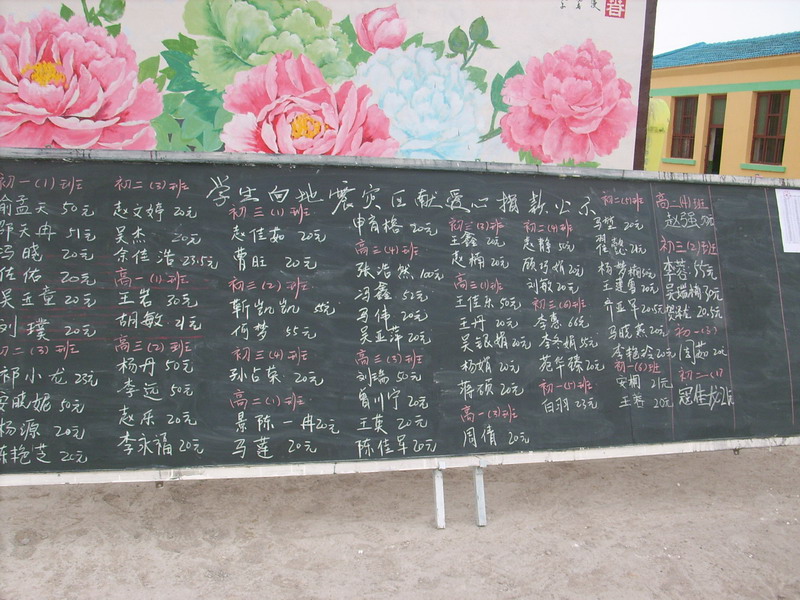 学生向地震灾区献爱心捐款公示
初一(1)班
俞孟天 50元
邵天冉 51元
冯晓 20元
佐佑 20元
吴玉童 20元
刘璞 20元
初二(3)班
祁小龙 23元
安欣妮 50元
杨源 20元
陈艳芝 20元
初二(3)班
赵文婷 20元
吴杰 20元
余佳浩 23.5元
高一(1)班
王岩 30元
胡敏 21元
高三(2)班
杨丹 50元
李远 50元
赵乐 20元
李永福 20元
初三(1)班
赵佳茹 20元
曹旺 20元
初三(2)班
靳凯凯 55元
何梦 55元
初三(4)班
孙占荣 20元
高二(1)班
景陈一冉 20元
马莲 20元
申育榕 20元
高三(4)班
张浩然 100元
冯鑫 50元
马伟 20元
吴亚萍 20元
高三(3)班
刘瑞 50元
曾川宁 20元
王英 20元
陈佳军 20元
初三(3)班
王鑫 20元
赵楠 20元
高三(1)班
王佳乐 50元
王丹 20元
吴银娟 20元
杨娟 20元
蒋硕 20元
高一(3)班
周倩 20元
初二(4)班
赵静 50元
顾巧娟 20元
刘敏 20元
初三(6)班
李惠 66元
李冬梅 55元
苑华臻 20元
初一(5)班
白羽 23元
初二(5)班
马堃 20元
翟懿 20元
杨梦楠 50元
王建勇 20元
乔亚军 20.5元
马晓燕 20元
李艳玲 20元
初一(6)班
安桐 21元
王蓉 20元
高二(4)班
赵强 50元
初三(2)班
李蓉 55元
吴瑞楠 30元
贺龙 20.5元
初一(3)
周茹 20元
初二(1)
寇佳松 21元